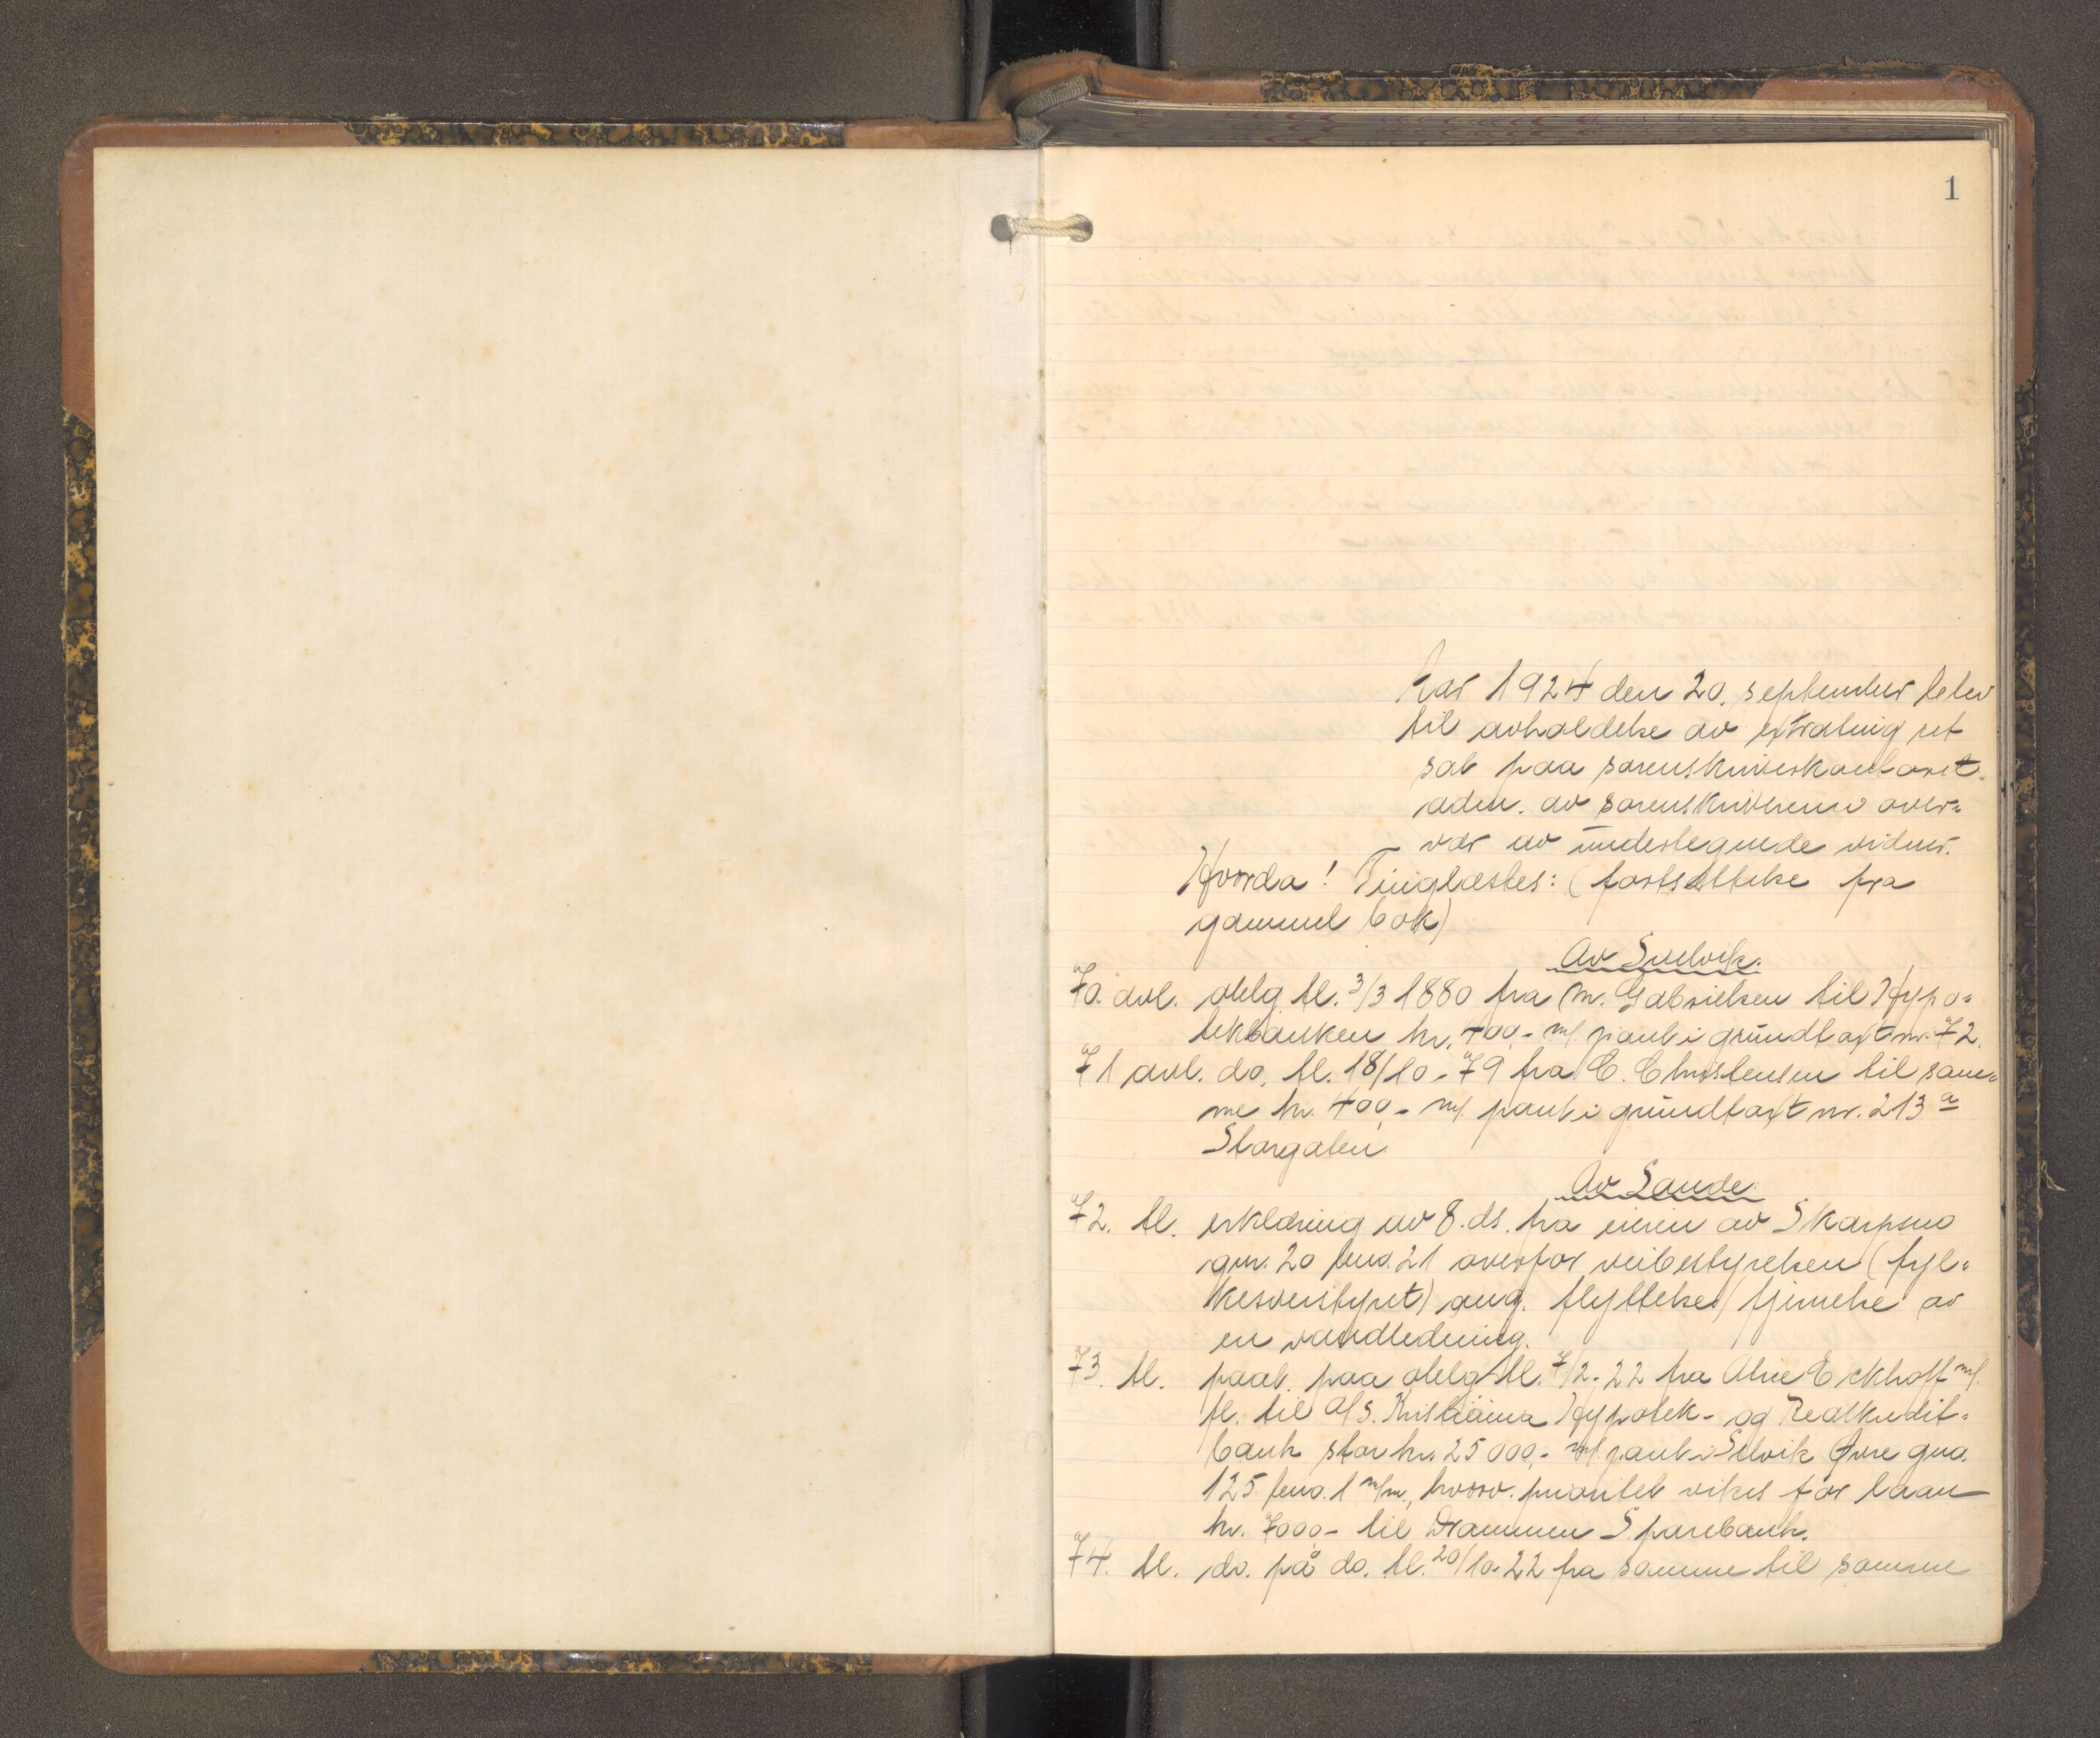 1
Aar 1924 den 20. september blev
til avholdelse av extrating ret
sat paa sorenskriverkontoret
adm. av sorenskriveren i over=
vær av undertegnede vidner.
Hvorda! Tinglæstes: (fortsættelse fra
gammel bok)
Av Svelvik.
70. avl. oblg. tl. 3/3 1880 fra M. Gabrielsen til Hypo=
tekbanken kr. 400,- m/ pant i grundtaxt nr. 72.
71 avl. do. tl. 18/10-79 fra C. Christensen til sam=
me kr. 400,- m/ pant i grundtaxt nr. 213 a
Storgaten.
Av Sande
72. tl. erklæring av 8. ds. fra eieren av Skarpsno
gnr. 20 bno. 21 overfor veibestyrelsen (fyl=
kesveistyret) ang. flyttelse/fjernelse av
en vandledning.
73. tl. paat. paa oblg. tl. 7/2-22 fra Alne Eckhoff m/
fl. til A/S. Kristiania Hypotek- og Realkredit=
bank stor kr. 25000,- m/ pant i Selvik øvre gno.
125 bno. 1 m/m., hvorv. prioritet vikes for laan
kr. 7000,- til Drammen Sparebank.
74. tl. do. på do. tl. 20/10-22 fra samme til samme